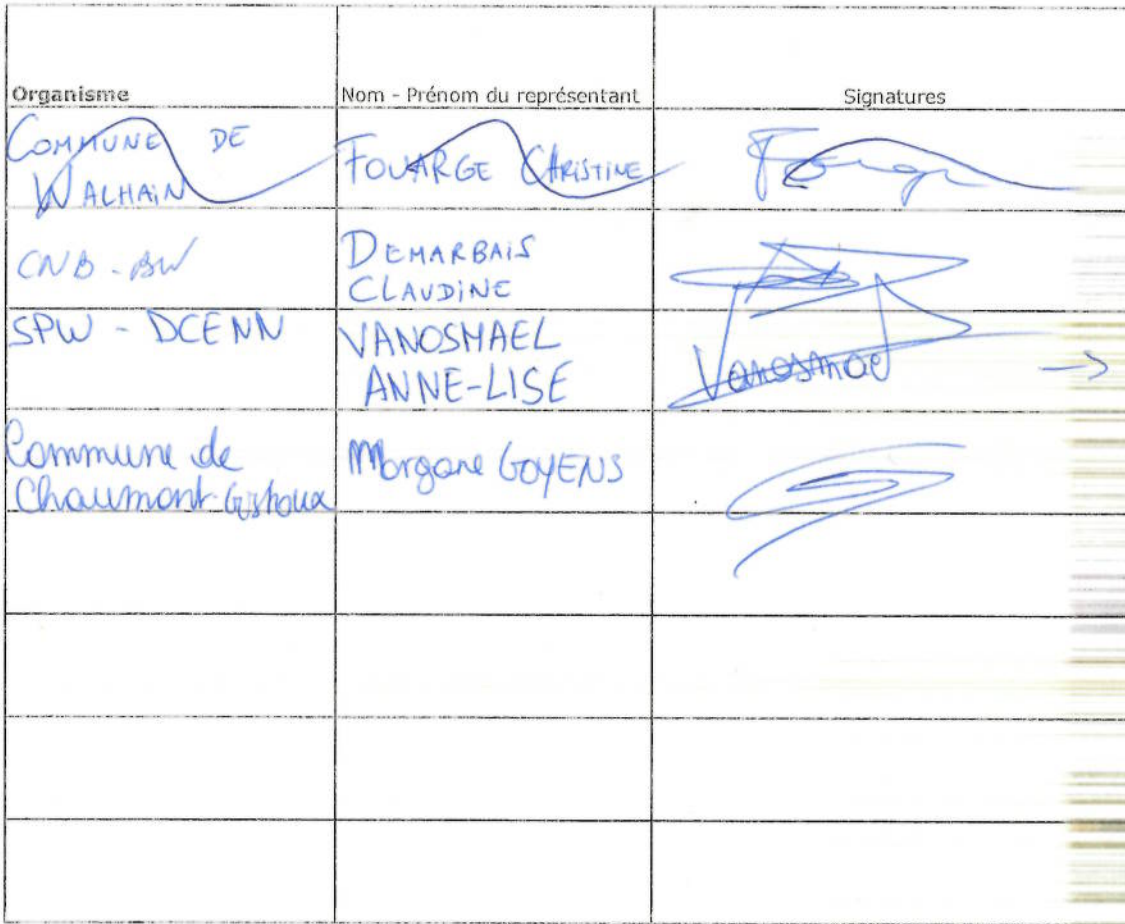 Organisme Nom - Prénom du représentant Signatures
COMMUNE DE
WALHAIN
FOUARGE CHRISTINE
CNB - BW
DEMARBAIS
CLAUDINE
SPW - DCENN
VANOSMAEL
ANNE-LISE
Vanosmael
→
Commune de
Chaumont-Gistoux
Morgane GOYENS